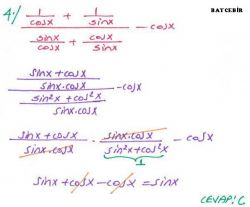 BATCEBİR
4·/ (1/cosx + 1/sinx) / (sinx/cosx + cosx/sinx) - cosx
((sinx+cosx)/(sinx.cosx)) / ((sin²x+cos²x)/(sinx.cosx)) - cosx
(sinx+cosx)/(sinx.cosx) · (sinx.cosx)/(sin²x+cos²x) - cosx
1
sinx+cosx-cosx=sinx
CEVAP: C